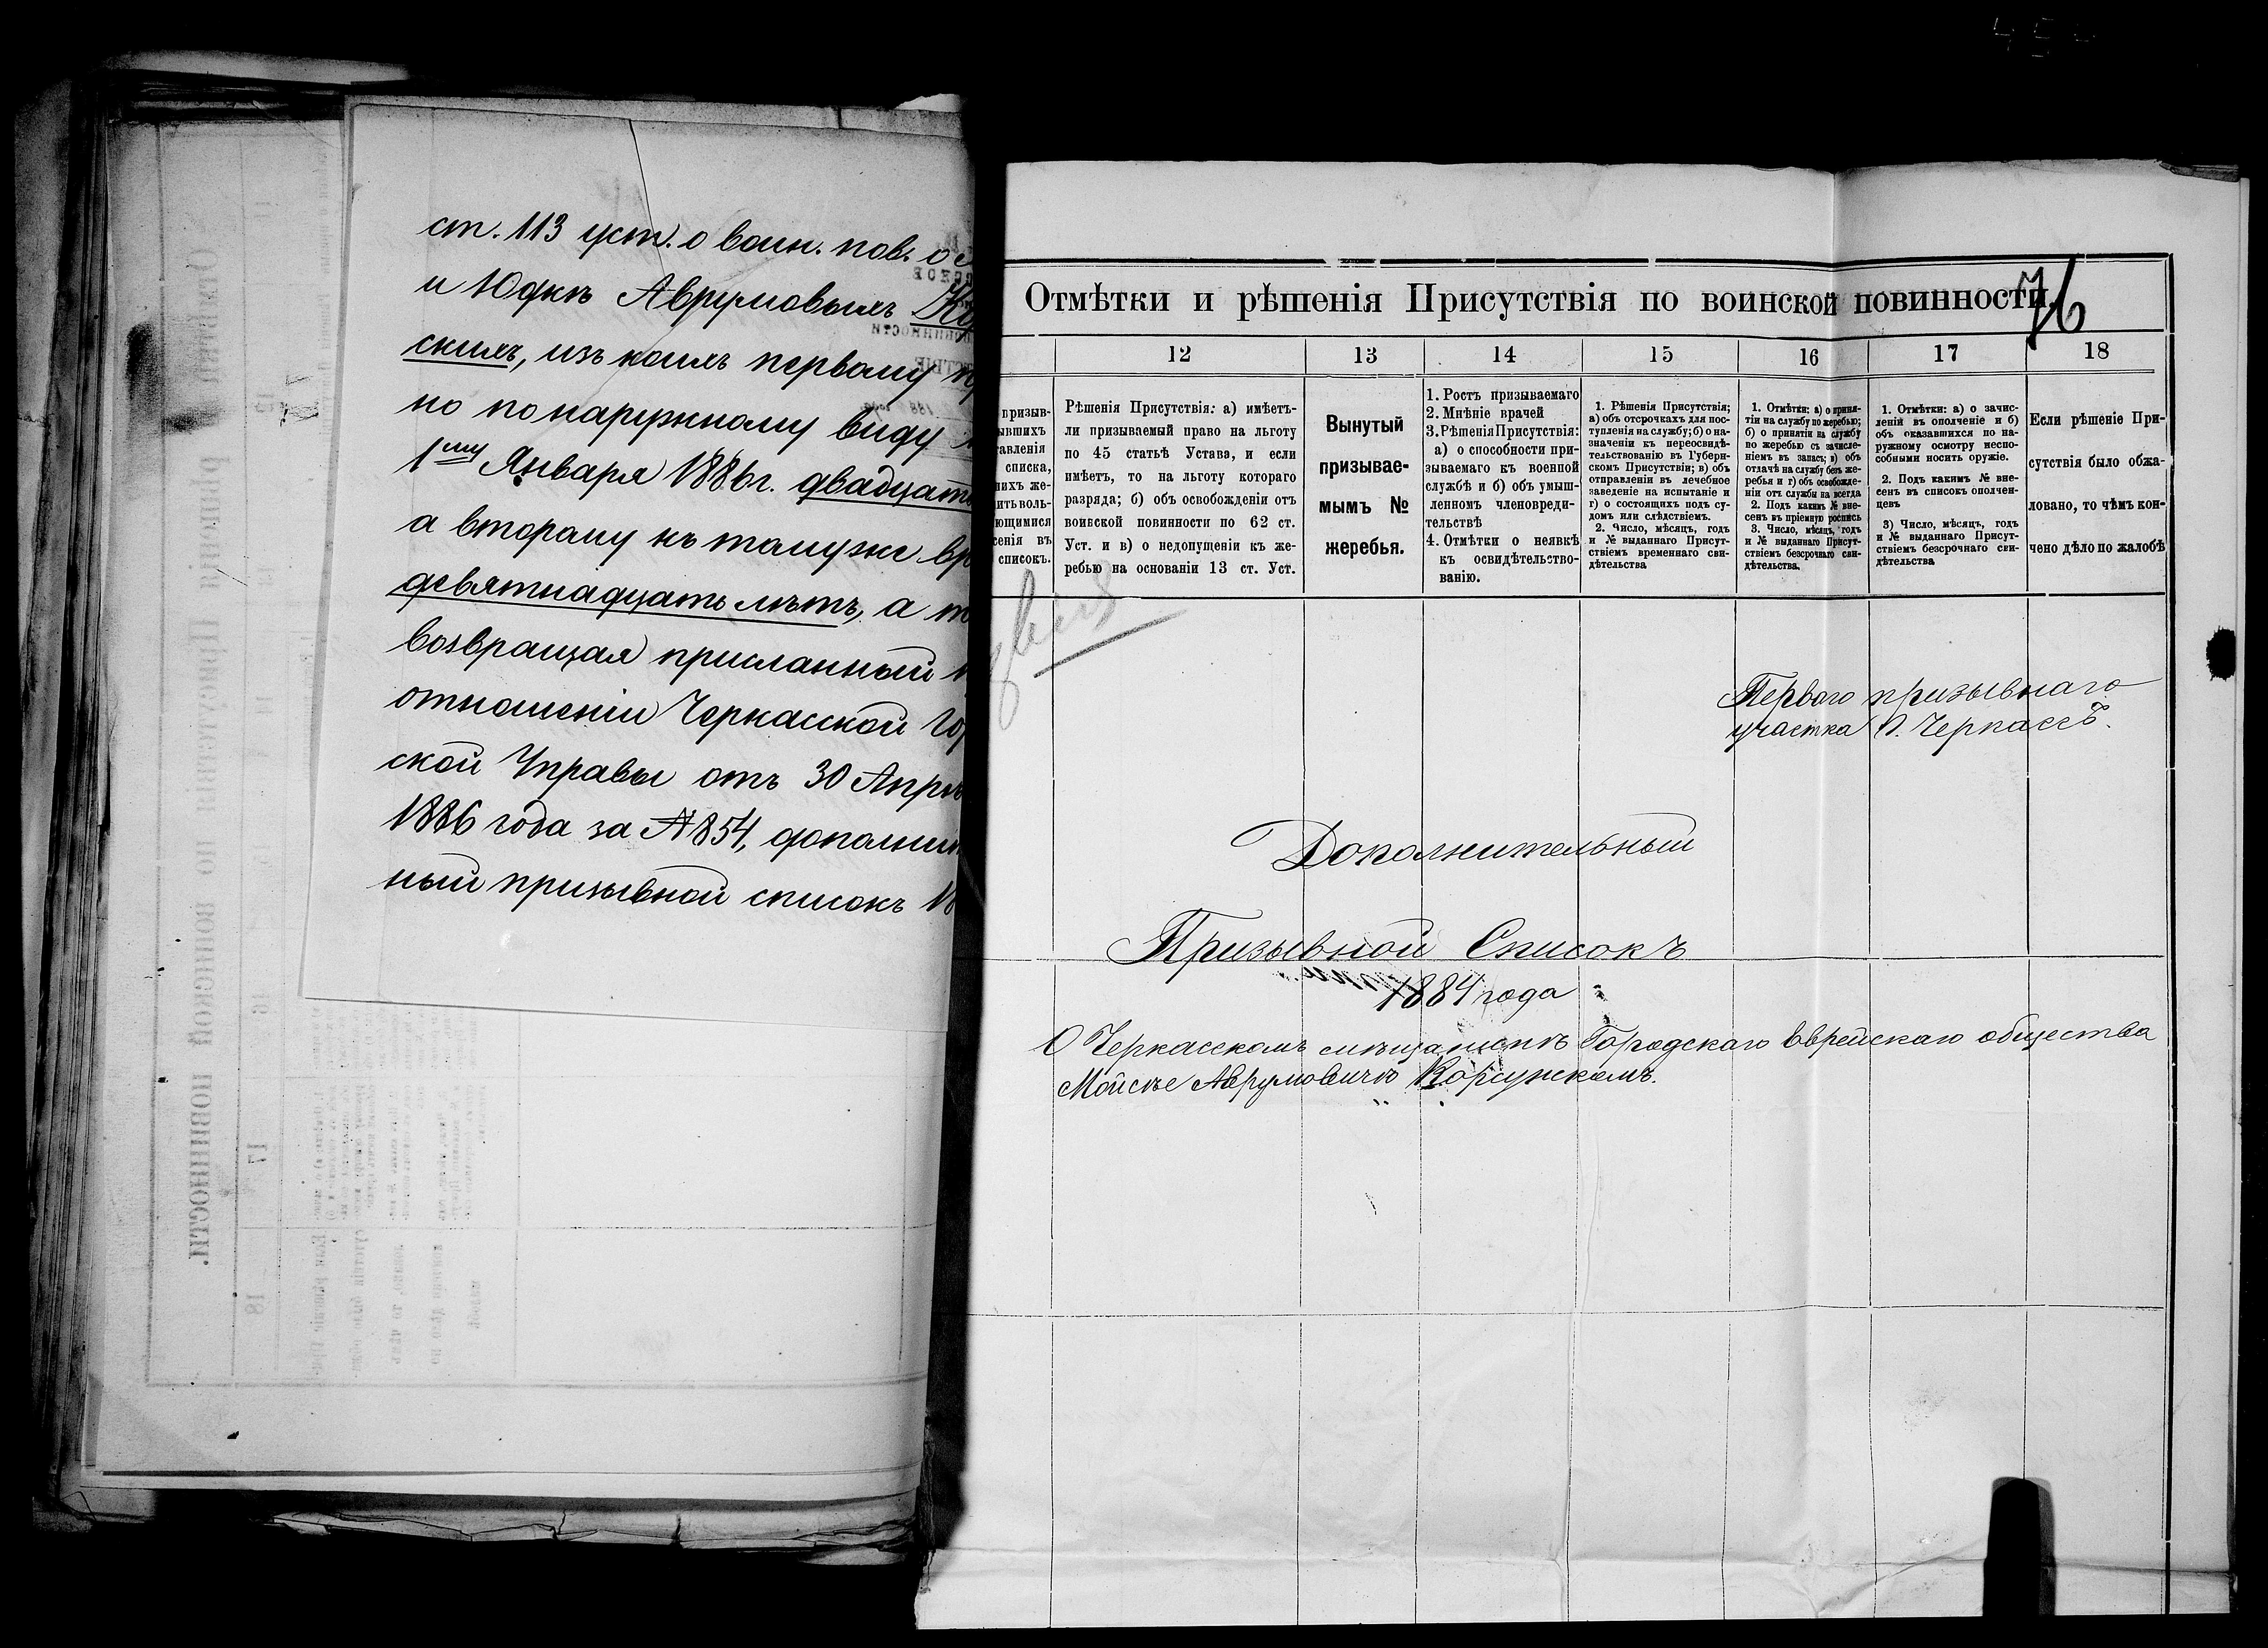 ст. 113 уст. о воин. пов. о
и Юдкѣ Аврумовымъ
скимъ, изъ коихъ первому
но по наружному виду
1му Января 1886 г. двадцать
а второму къ тому же
девятнадцать лѣтъ, а
возвращая присланный
отношеніи Черкасской
ской Управы отъ 30
1886 года за № 854,
ный призывной списокъ
76
Отмѣтки и рѣшенія Присутствія по воинской повинности.
12 13 14 15 16 17 18
призыв-
ывшихъ
тавленія
списка,
ихъ же-
ить воль-
ющимися
сенія въ
списокъ.
Рѣшенія Присутствія: а) имѣетъ-
ли призываемый право на льготу
по 45 статьѣ Устава, и если
имѣетъ, то на льготу котораго
разряда; б) объ освобожденіи отъ
воинской повинности по 62 ст.
Уст. и в) о недопущеніи къ же-
ребью на основаніи 13 ст. Уст.
Вынутый
призывае-
мымъ №
жеребья.
1. Ростъ призываемаго
2. Мнѣніе врачей
3. Рѣшенія Присутствія:
а) о способности при-
зываемаго къ военной
службѣ и б) объ умыш-
ленномъ членовреди-
тельствѣ
4. Отмѣтки о неявкѣ
къ освидѣтельство-
ванію.
1. Рѣшенія Присутствія;
а) объ отсрочкахъ для пос-
тупленія на службу; б) о на-
значеніи къ переосвидѣ-
тельствованію въ Губерн-
скомъ Присутствіи; в) объ
отправленіи въ лечебное
заведеніе на испытаніе и
г) о состоящихъ подъ су-
домъ или слѣдствіемъ.
2. Число, мѣсяцъ, годъ
и № выданнаго Присут-
ствіемъ временнаго сви-
дѣтельства
1. Отмѣтки: а) о приня-
тіи на службу по жеребью;
б) о принятіи на службу
по жеребью съ зачисле-
ніемъ въ запасъ; в) объ
отдачѣ на службу безъ же-
ребья и г) объ освобожде-
ніи отъ службы на всегда
2. Подъ какимъ № вне-
сенъ въ пріемную роспись
3. Число, мѣсяцъ, годъ
и № выданнаго Присут-
ствіемъ безсрочнаго сви-
дѣтельства.
1. Отмѣтки: а) о зачис-
леніи въ ополченіе и б)
объ оказавшихся по на-
ружному осмотру неспо-
собными носить оружіе.
2. Подъ какимъ № вне-
сенъ въ списокъ ополчен-
цевъ
3) Число, мѣсяцъ, годъ
и № выданнаго Присут-
ствіемъ безсрочнаго сви-
дѣтельства
Если рѣшеніе При-
сутствія было обжа-
ловано, то чѣмъ кон-
чено дѣло по жалобѣ
Перваго призывнаго
участка г. Черкассъ.
Дополнительный
Призывной Списокъ
1884 года
О Черкасскомъ мѣщанинѣ Городскаго Еврейскаго общества
Мойсѣе Аврумовичѣ Корсунскомъ.